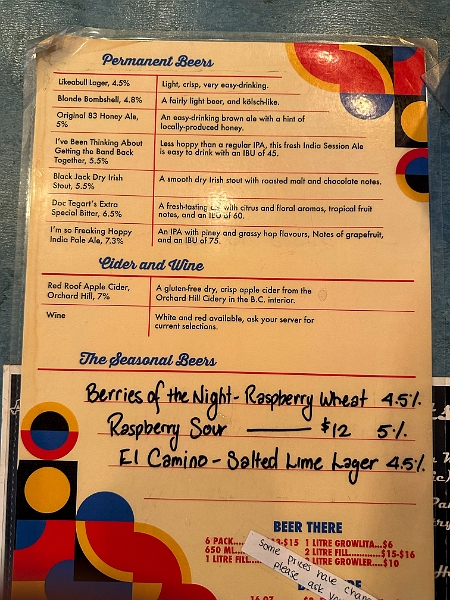 Permanent Beers
Likeabull Lager, 4.5% Light, crisp, very easy-drinking.
Blonde Bombshell, 4.8% A fairly light beer, and kölsch-like.
Original 83 Honey Ale, An easy-drinking brown ale with a hint of
5% locally-produced honey.
I've Been Thinking About Less hoppy than a regular IPA, this fresh India Session Ale
Getting the Band Back is easy to drink with an IBU of 45.
Together, 5.5%
Black Jack Dry Irish A smooth dry Irish stout with roasted malt and chocolate notes.
Stout, 5.5%
Doc Tegart's Extra A fresh-tasting with citrus and floral aromas, tropical fruit
Special Bitter, 6.5% notes, and an IBU of 60.
I'm so Freaking Hoppy An IPA with piney and grassy hop flavours, Notes of grapefruit,
India Pale Ale, 7.3% and an IBU of 75.
Cider and Wine
Red Roof Apple Cider, A gluten-free dry, crisp apple cider from the
Orchard Hill, 7% Orchard Hill Cidery in the B.C. interior.
Wine White and red available, ask your server for
current selections.
The Seasonal Beers
Berries of the Night - Raspberry Wheat 4.5%
Raspberry Sour — $12 5%
El Camino - Salted Lime Lager 4.5%
BEER THERE
6 PACK 13-$15 1 LITRE GROWLITA...$6
650 ML 2 LITRE FILL $15-$16
1 LITRE FILL LITRE GROWLER $10
Some prices have
please ask